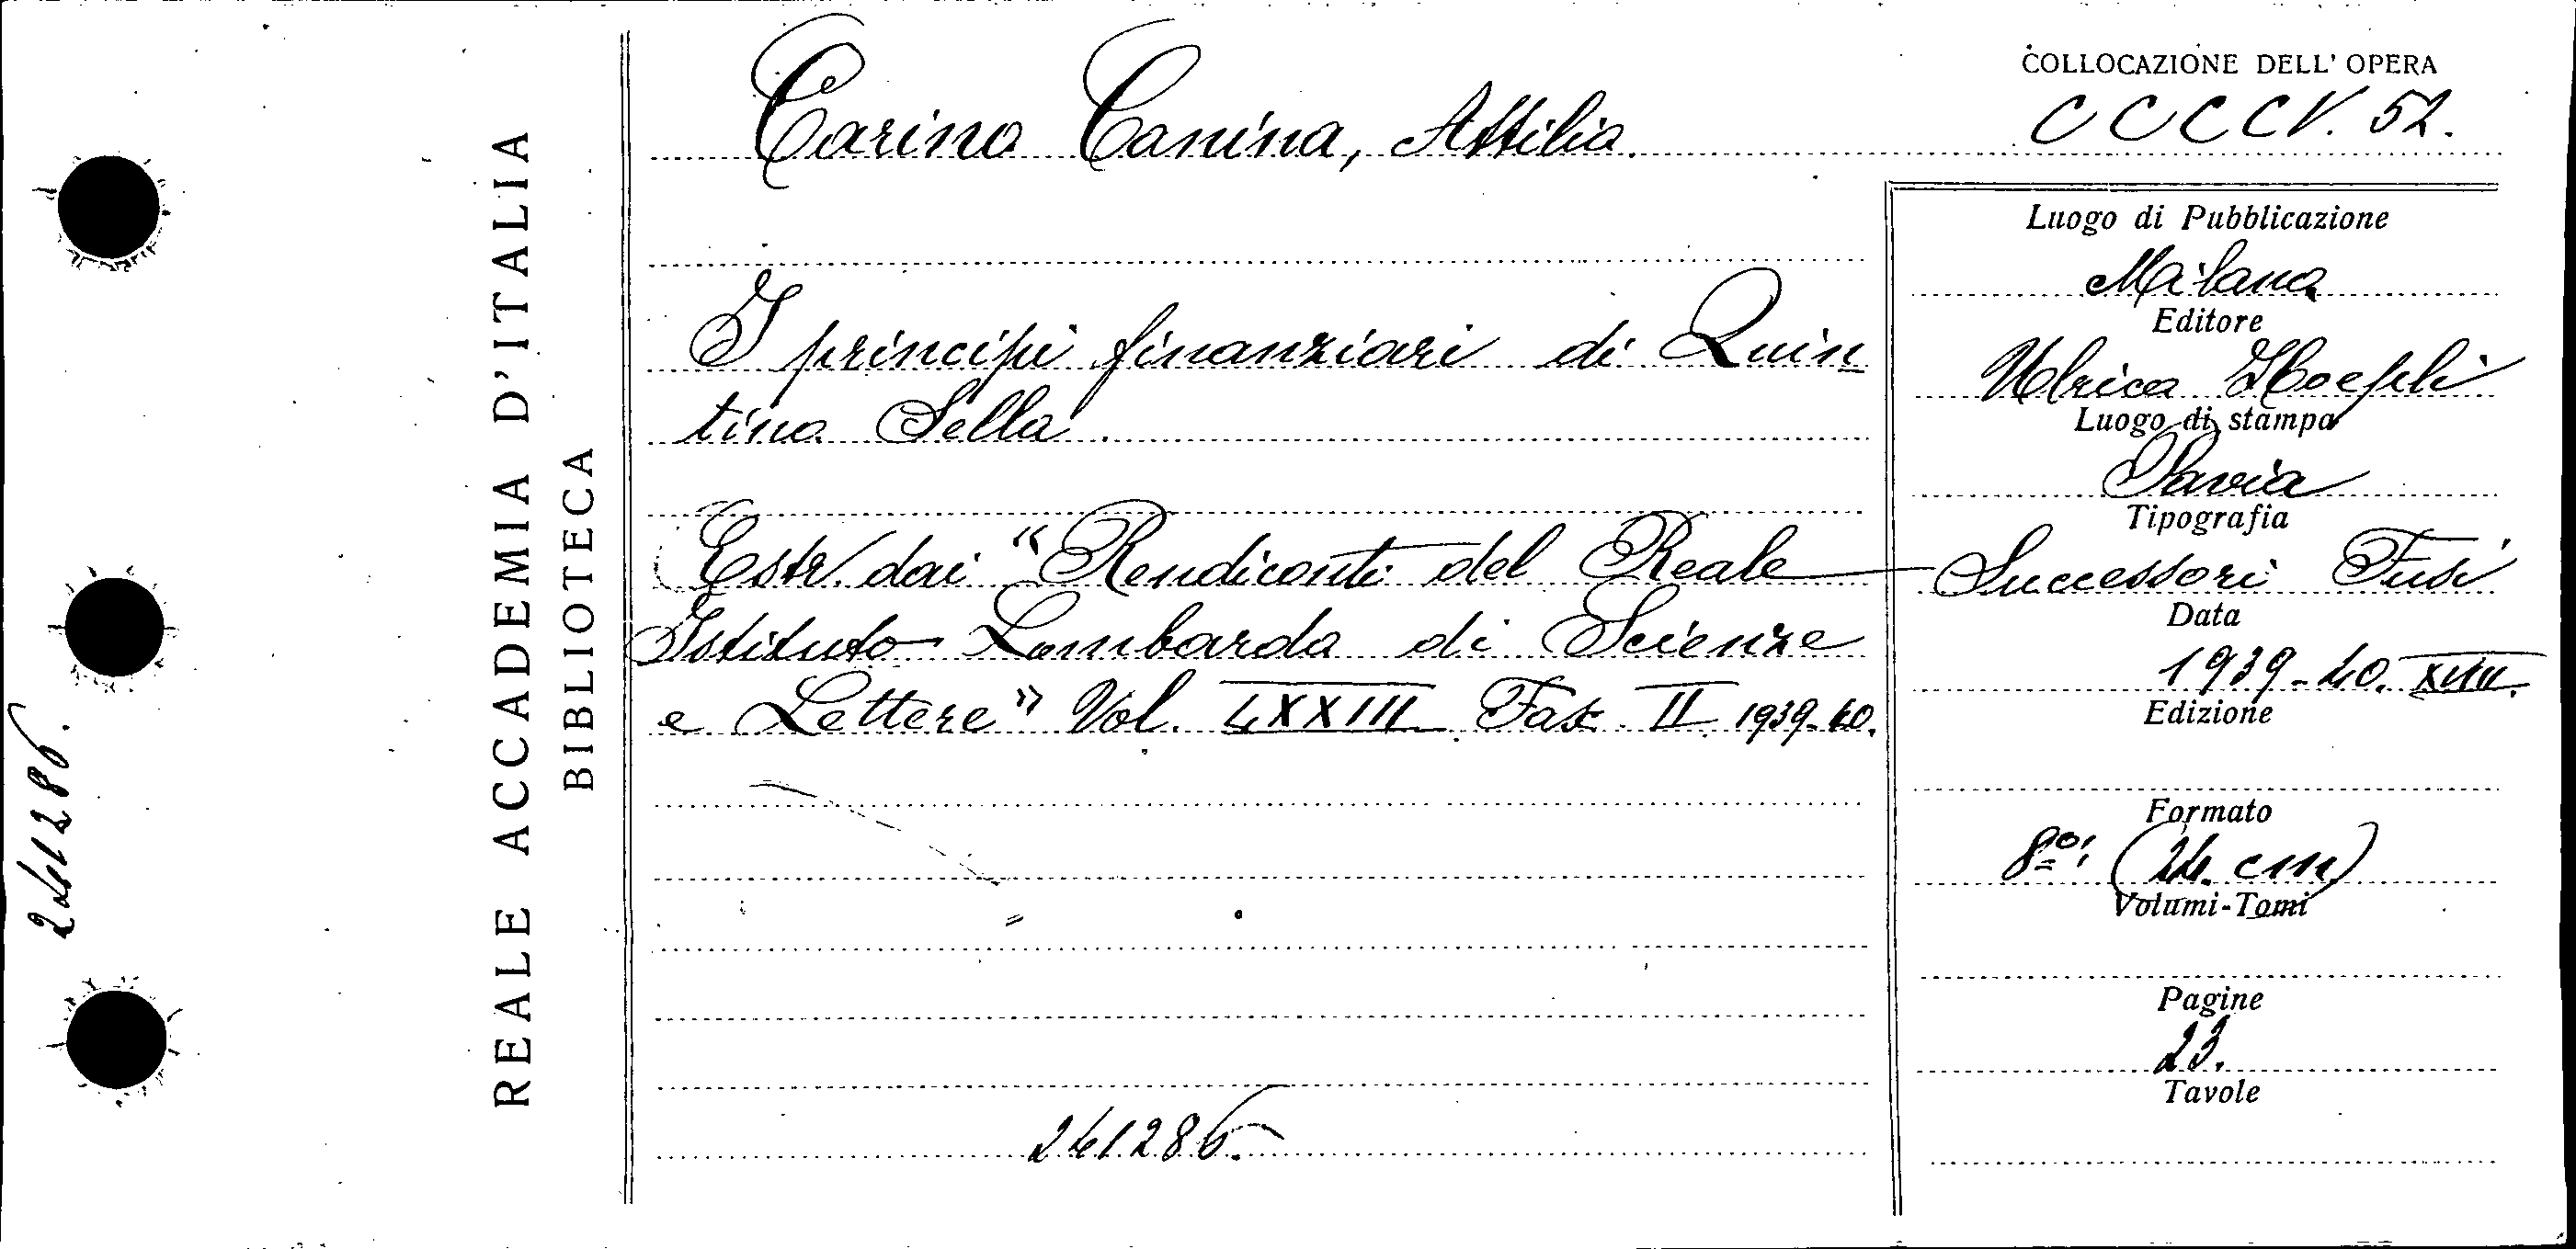 REALE ACCADEMIA D'ITALIA
BIBLIOTECA
241286.
Garino Canina, Attilio.
COLLOCAZIONE DELL' OPERA
CCCCV. 52.
I principi finanziari di Quin
tino Sella.
Estr. dai "Rendiconti del Reale
Istituto Lombardo di Scienze
e Lettere" Vol. LXXIII Fasc. II 1939-40.
241286.
Luogo di Pubblicazione
Milano
Editore
Ulrico Hoepli
Luogo di stampa
Pavia
Tipografia
Successori Fusi
Data
1939-40. XVIII.
Edizione
Formato
8º; (24 cm)
Volumi-Tomi
Pagine
23.
Tavole